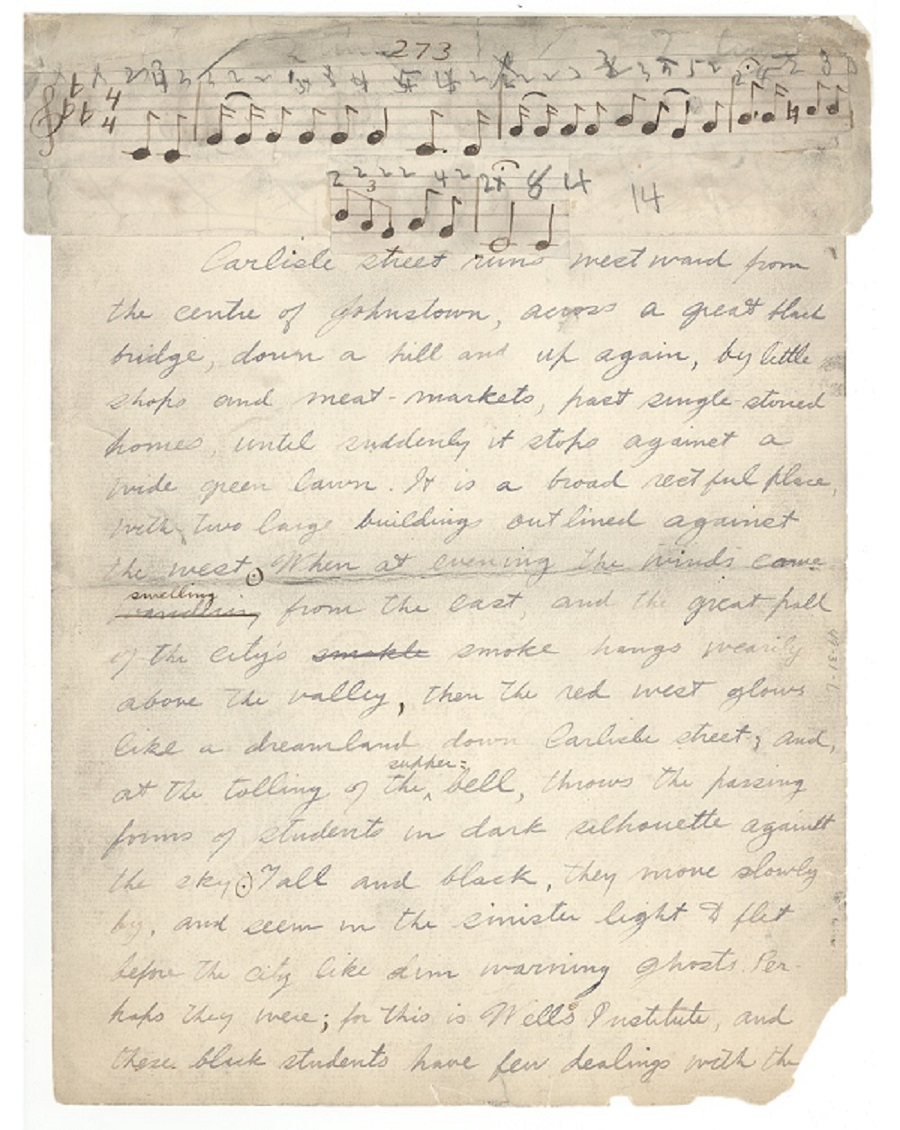 273
4
4
3
14
Carlisle street runs westward from
the centre of Johnstown, across a great black
bridge, down a hill and up again, by little
shops and meat-markets, past single-storied
homes, until suddenly it stops against a
wide green lawn. It is a broad restful place,
with two large buildings outlined against
the west. When at evening the winds come
swelling
from the east, and the great pall
of the city's smokle smoke hangs wearily
above the valley, then the red west glows
like a dreamland down Carlisle street; and,
supper-
at the tolling of the bell, throws the passing
forms of students in dark silhouette against
the sky. Tall and black, they move slowly
by, and seem in the sinister light to flit
before the city like dim warning ghosts. Per-
haps they were; for this is Wells Institute, and
these black students have few dealings with the